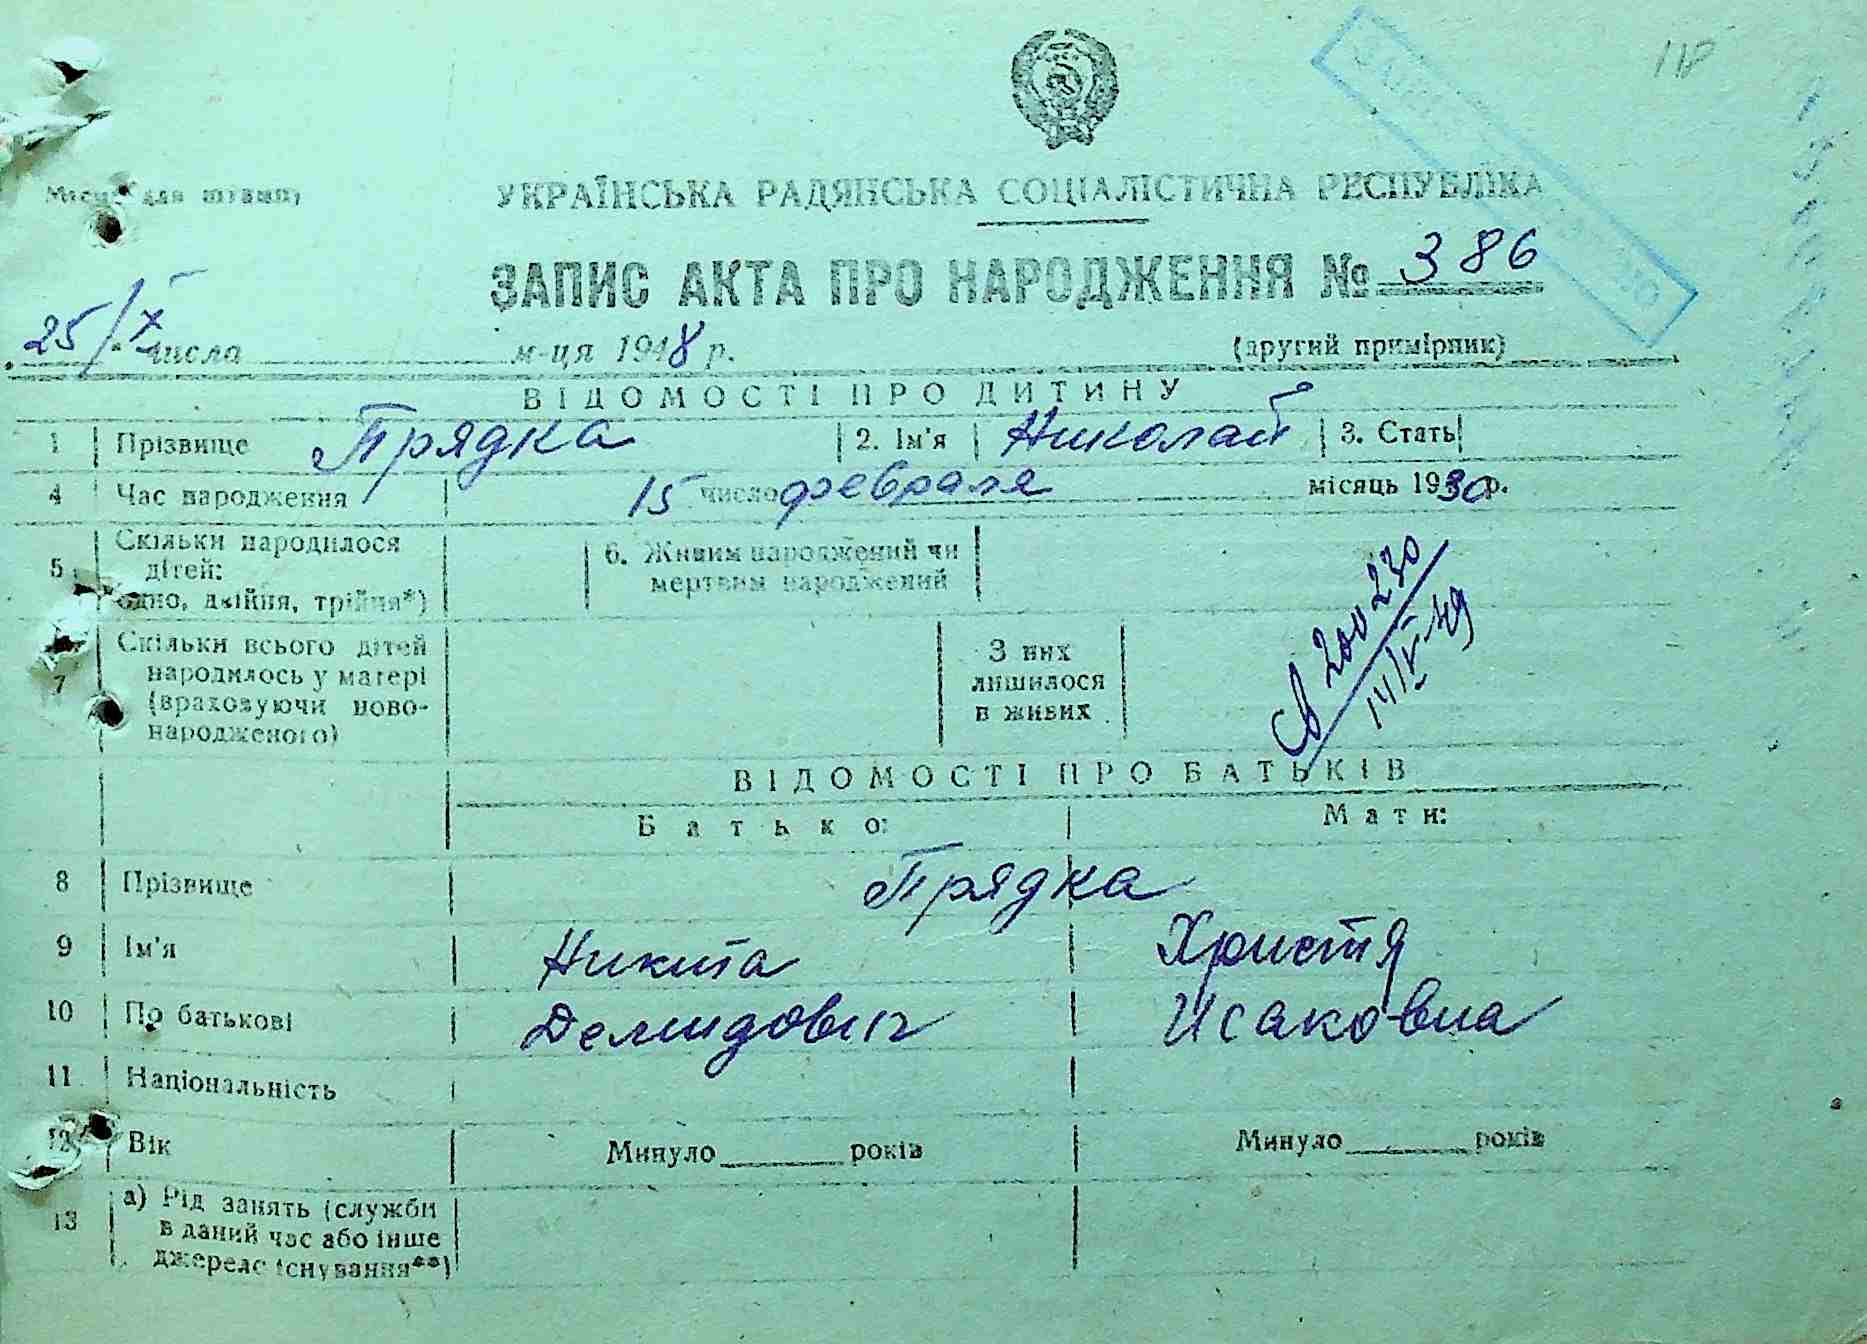 Місце для штампу
УКРАЇНСЬКА РАДЯНСЬКА СОЦІАЛІСТИЧНА РЕСПУБЛІКА
ЗАПИС АКТА ПРО НАРОДЖЕННЯ № 386
25/X числа м-ця 1948 р. (другий примірник)
ВІДОМОСТІ ПРО ДИТИНУ
1 Прізвище Прядка 2. Ім'я Николай 3. Стать
4 Час народження 15 число февраля місяць 1930 р.
5 Скільки народилося
дітей:
одно, двійня, трійня*)
6. Живим народжений чи
мертвим народжений
7 Скільки всього дітей
народилось у матері
(враховуючи ново-
народженого)
З них
лишилося
в живих
св 200230
14/V-49
ВІДОМОСТІ ПРО БАТЬКІВ
Батько: Мати:
8 Прізвище Прядка
9 Ім'я Никита Христя
10 По батькові Демидович Исаковна
11 Національність
12 Вік Минуло ______ років Минуло ______ років
13 а) Рід занять (служби
в даний час або інше
джерело існування**)